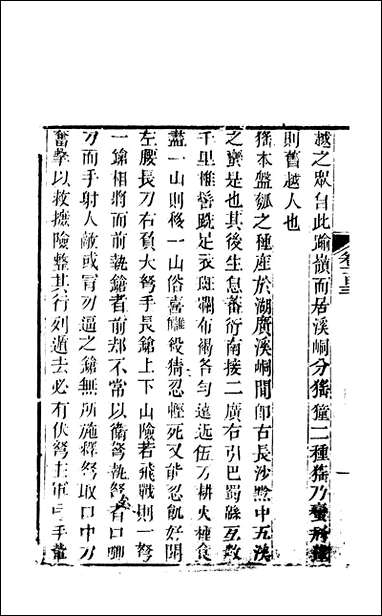 越之眾自此踰嶺而居溪峒分猺獞二種猺乃蠻荆獞
則舊越人也
猺本盤瓠之種產於湖廣溪峒間即古長沙黔中五溪
之蠻是也其後生息蕃衍南接二廣右引巴蜀緜亙數
千里椎髻跣足衣斑斕布褐各勺遠近伍刀耕火種食
盡一山則移一山俗喜讎殺猜忍輕死又能忍飢好鬬
左腰長刀右負大弩手長鎗上下山險若飛戰則一弩
一鎗相將而前執鎗者前却不常以衛弩執弩者口啣
刀而手射人敵或冒刃逼之鎗無所施釋弩取口中刀
奮擊以救撫險整其行列遁去必有伏弩土軍弓手輩